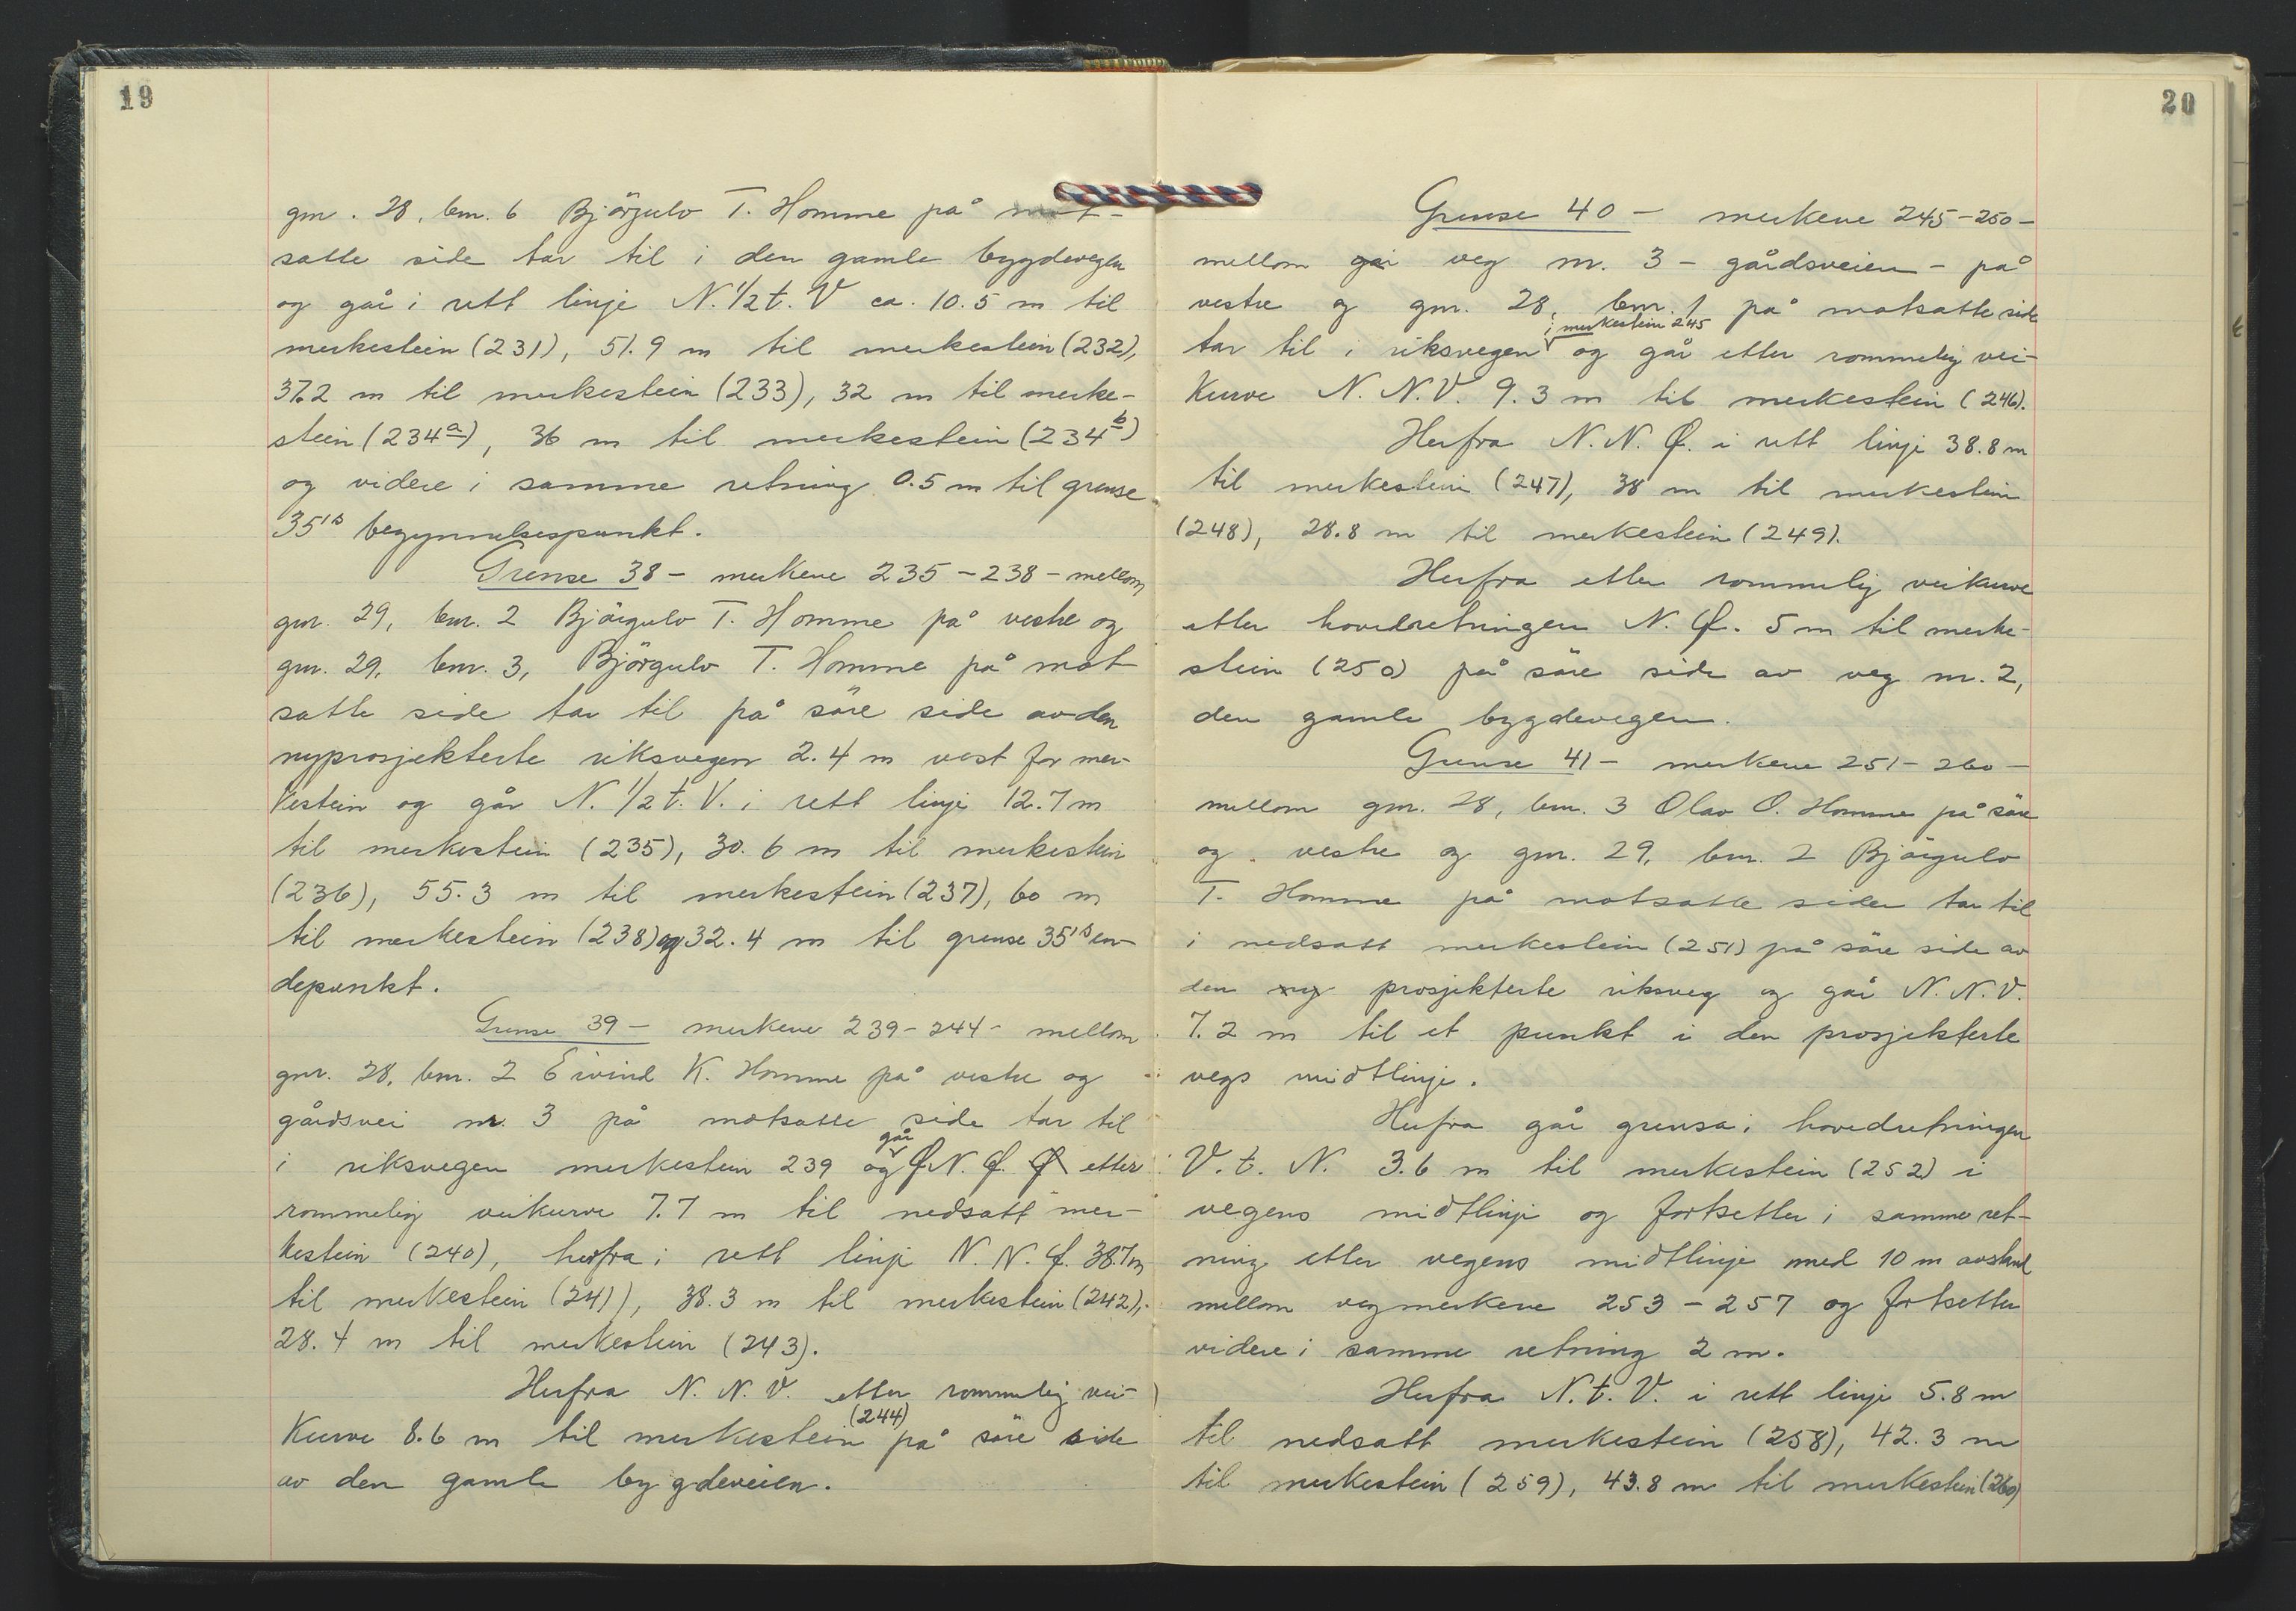 19
gnr. 28, bnr. 6 Björgulv T. Homme på mot-
satte side tar til i den gamle bygdevegen
og går i rett linje N. 1/2 t. V ca. 10.5 m til
merkestein (231), 51.9 m til merkestein (232),
37.2 m til merkestein (233), 32 m til merke-
stein (234a), 36 m til merkestein (234b)
og videre i samme retning 0.5 m til grense
35's begynnelsespunkt.
Grense 38 - merkene 235 - 238 - mellom
gnr. 29, bnr. 2 Björgulv T. Homme på vestre og
gnr. 29, bnr. 3, Björgulv T. Homme på mot
satte side tar til på söre side av den
nyprosjekterte riksvegen 2.4 m vest for mer-
kestein og går N. 1/2 t. V. i rett linje 12.7 m
til merkestein (235), 30.6 m til merkestein
(236), 55.3 m til merkestein (237), 60 m
til merkestein (238) og 32.4 m til grense 35's en-
depunkt.
Grense 39 - merkene 239 - 244 - mellom
gnr. 28, bnr. 2 Eivind K. Homme på vestre og
gårdsvei nr. 3 på motsatte side tar til
går
i riksvegen merkestein 239 og Ø N. Ø. Ø etter
rommelig veikurve 7.7 m til nedsatt mer-
kestein (240), herfra i rett linje N. N. Ø. 38.7 m
til merkestein (241), 38.3 m til merkestein (242),
28.4 m til merkestein (243).
Herfra N. N. V. etter rommelig vei-
(244)
kurve 8.6 m til merkestein på söre side
av den gamle bygdeveien.
20
Grense 40 - merkene 245 - 250 -
mellom går veg nr. 3 - gårdsveien - på
vestre og gnr. 28, bnr. 1 på motsatte side
i merkestein 245
tar til i riksvegen og går etter rommelig vei-
kurve N. N. V. 9.3 m til merkestein (246).
Herfra N. N. Ø. i rett linje 38.8 m
til merkestein (247), 38 m til merkestein
(248), 28.8 m til merkestein (249).
Herfra etter rommelig veikurve
etter hovedretningen N. Ø. 5 m til merke-
stein (250) på söre side av veg nr. 2,
den gamle bygdevegen.
Grense 41 - merkene 251 - 260 -
mellom gnr. 28, bnr. 3 Olav O. Homme på söre
og vestre og gnr. 29, bnr. 2 Björgulv
T. Homme på motsatte sider tar til
i nedsatt merkestein (251) på söre side av
den ny prosjekterte riksveg og går N. N. V.
7.2 m til et punkt i den prosjekterte
vegs midtlinje.
Herfra går grensa i hovedretningen
V. t. N. 3.6 m til merkestein (252) i
vegens midtlinje og fortsetter i samme ret-
ning etter vegens midtlinje med 10 m avstand
mellom vegmerkene 253 - 257 og fortsetter
videre i samme retning 2 m.
Herfra N. t. V. i rett linje 5.8 m
til nedsatt merkestein (258), 42.3 m
til merkestein (259), 43.8 m til merkestein (260)